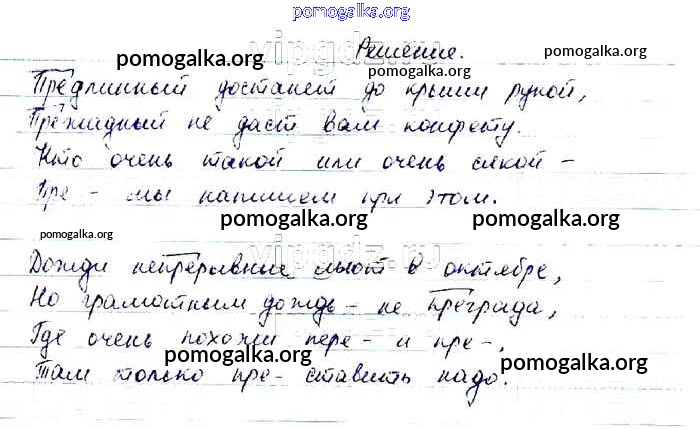 pomogalka.org
Решение.
pomogalka.org
pomogalka.org
pomogalka.org
vipgdz.ru
Предлинный достанет до крыши рукой,
Прежадный не даст вам конфету.
pomogalka.org
pomogalka.org
Кто очень такой или очень сякой –
Пре – мы напишем при этом.
pomogalka.org
pomogalka.org
pomogalka.org
vipgdz.ru
Дожди непрерывные льют в октябре,
Но грамотным дождь – не преграда,
pomogalka.org
Где очень похожи пере – и пре –,
pomogalka.org
pomogalka.org
Там только пре – ставить надо.